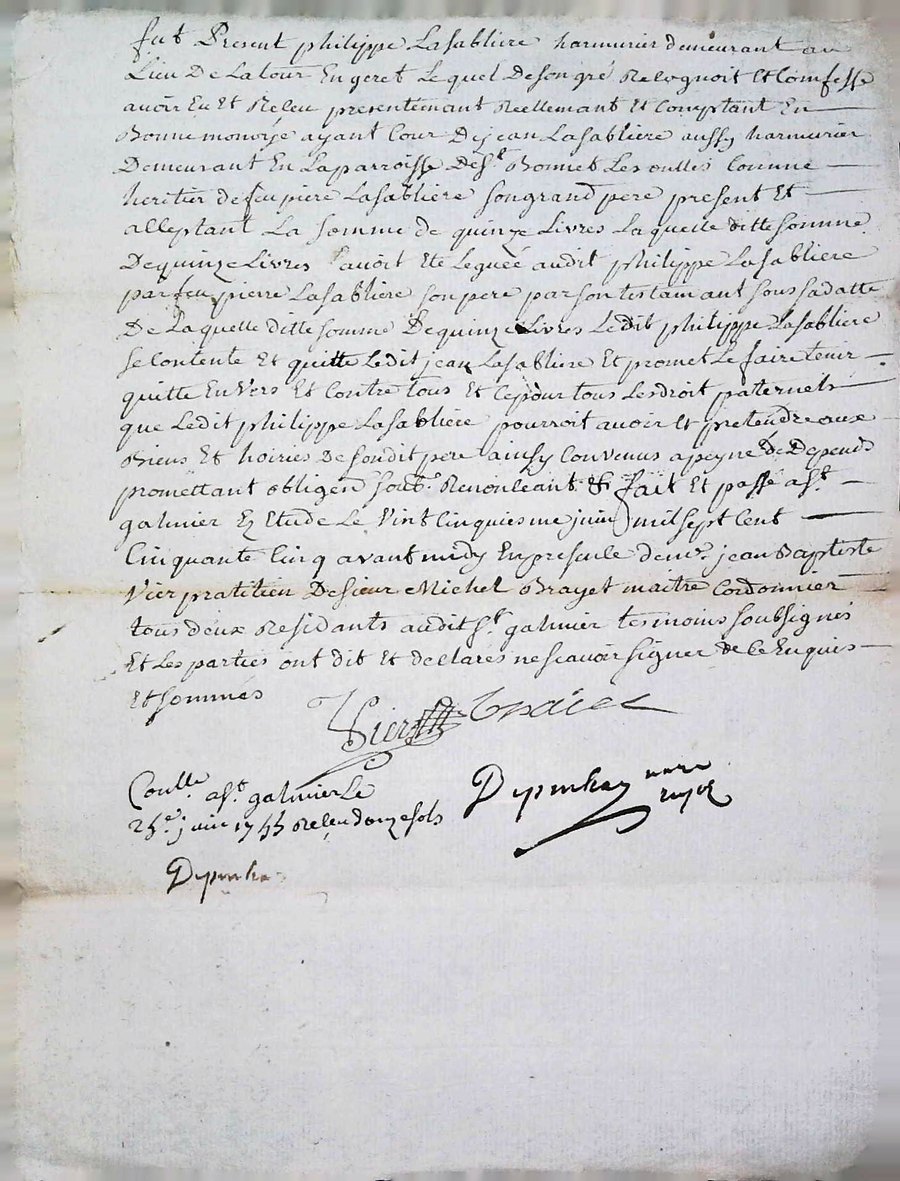 fut Present philippe Lasabliere harmurier demeurant au
Lieu De Latour En geret Lequel De son gré Recognoit Et Comfesse
avoir Eu Et Receu presentemant Reellemant Et Comptant En
Bonne monoye ayant Cour De jean Lasabliere aussy harmurier
Demeurant En La parroisse De St. Bonnet Les oulles Comme
heritier de feu piere Lasabliere son grand pere present Et
acceptant La somme de quinze Livres Laquelle ditte somme
De quinze Livres avoit Eté Leguée audit philippe Lasabliere
par feu pierre Lasabliere son pere par son testamant sous sa datte
De Laquelle ditte somme De quinze Livres Ledit philippe Lasabliere
se Contente Et quitte Ledit jean Lasabliere Et promet Le faire tenir
quitte Envers Et Contre tous Et Ce pour tous Les droit paternels
que Ledit philippe Lasabliere pourroit avoir Et pretendre aux
Biens Et hoiries De son dit pere ainsy Convenus a peyne De Depends
promettant obligend soub. Renonceant & fait Et passé a St.
galmier Ez Etude Le Vint Cinquiesme juin mil sept Cent
Cinquante Cinq avant midy En presence de mr. jean Baptiste
Vier pratitien De sieur Michel Brayet maitre Cordonnier
tous deux Residants audit St. galmier tesmoins soubsignés
Et Les parties ont dit Et declarés ne scavoir signer de Ce Enquis
Et sommés
Vier
Conlle. a St. galmier Le
25e. juin 1755 Receu douze sols